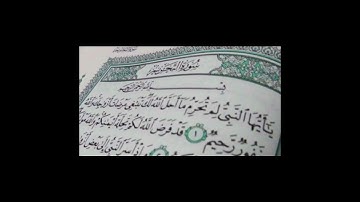 سُورَةُ التَّحْرِيمِ
بِسْمِ اللَّهِ الرَّحْمَٰنِ الرَّحِيمِ
يَا أَيُّهَا النَّبِيُّ لِمَ تُحَرِّمُ مَا أَحَلَّ اللَّهُ لَكَ تَبْتَغِي مَرْضَاتَ أَزْوَاجِكَ وَاللَّهُ
غَفُورٌ رَّحِيمٌ ١ قَدْ فَرَضَ اللَّهُ لَكُمْ تَحِلَّةَ أَيْمَانِكُمْ وَاللَّهُ
وَإِذْ أَسَرَّ النَّبِيُّ إِلَىٰ بَعْضِ